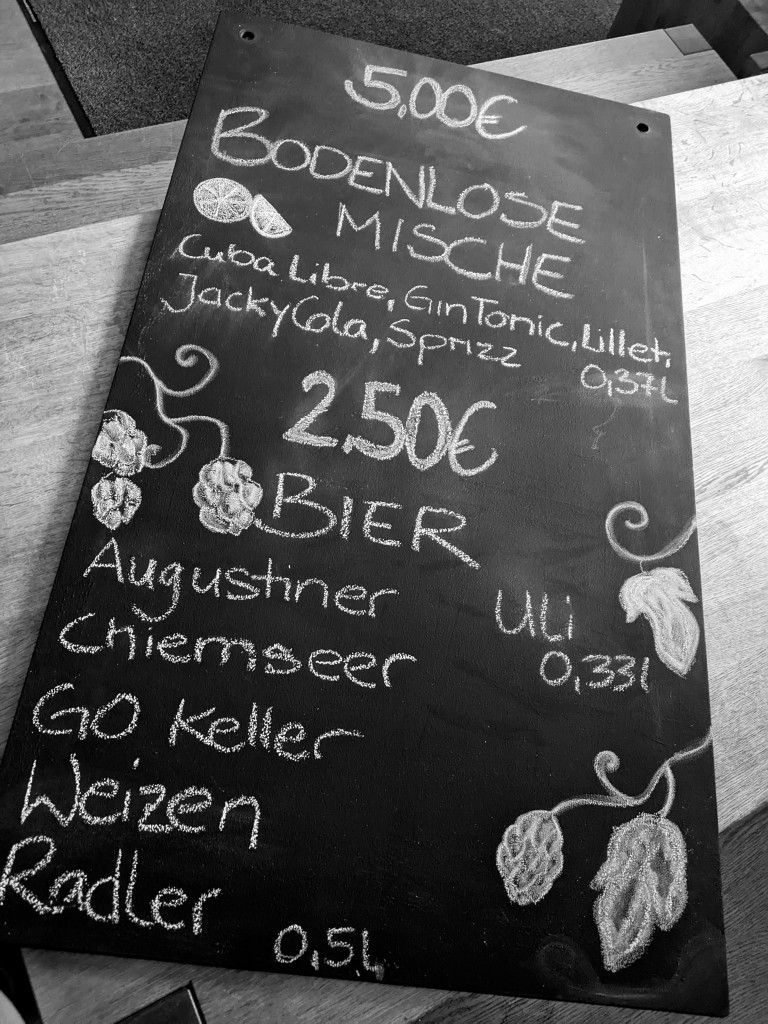 5,00€
BODENLOSE
MISCHE
Cuba Libre, Gin Tonic, Lillet,
Jacky Cola, Sprizz
0,37L
2,50€
BIER
Augustiner
Chiemseer
GO Keller
Weizen
Radler
0,5L
Uli
0,33l